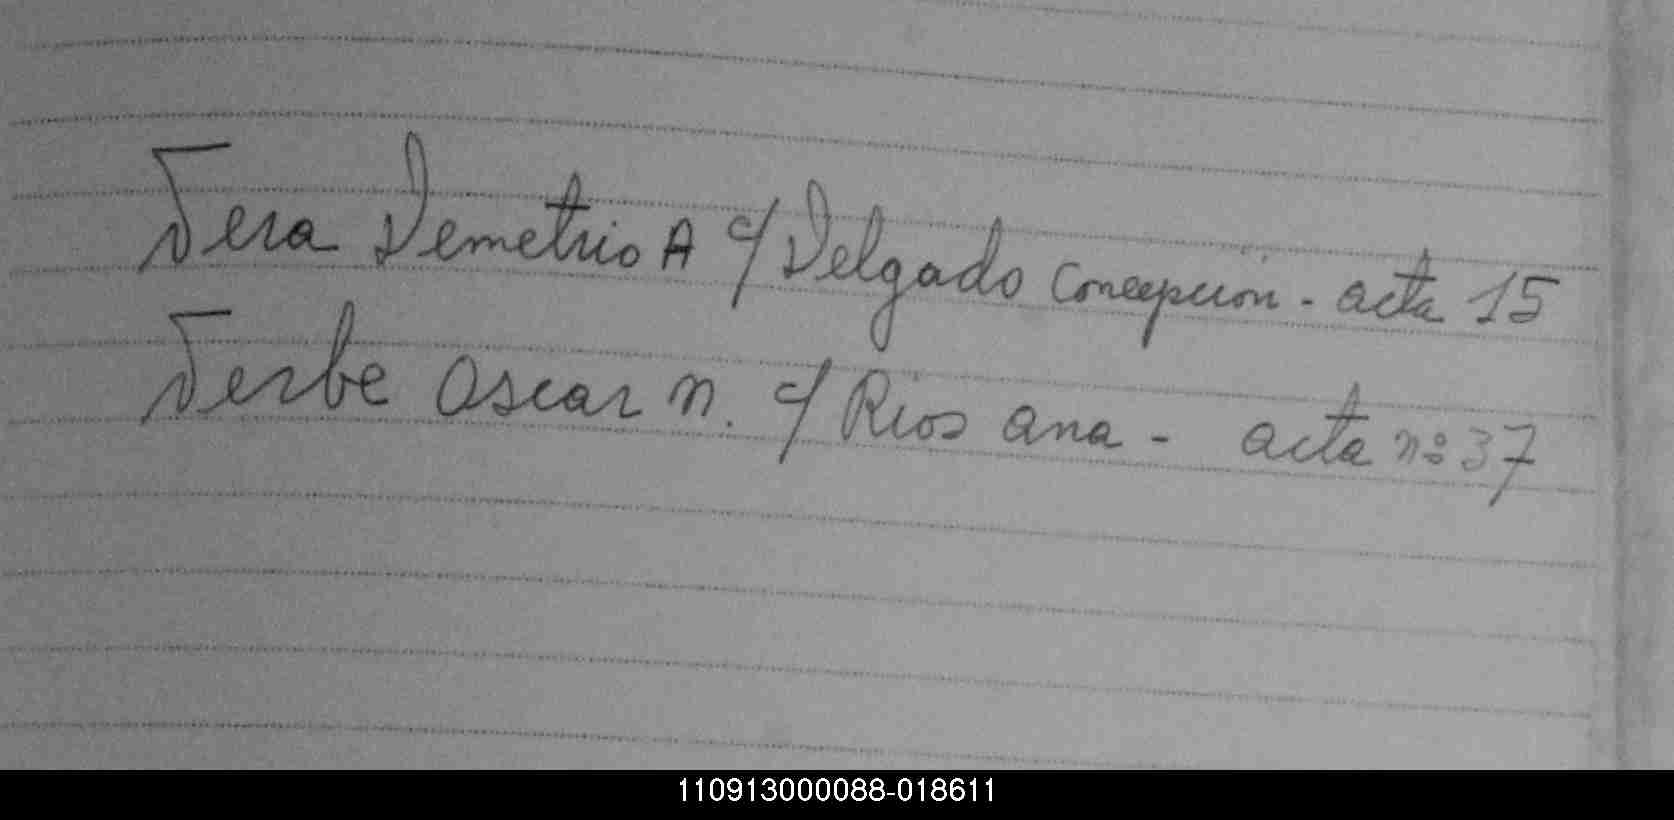 Vera Demetrio A c/ Delgado Concepción - acta 15
Verbe Oscar N. c/ Rios Ana - acta nº 37
110913000088-018611